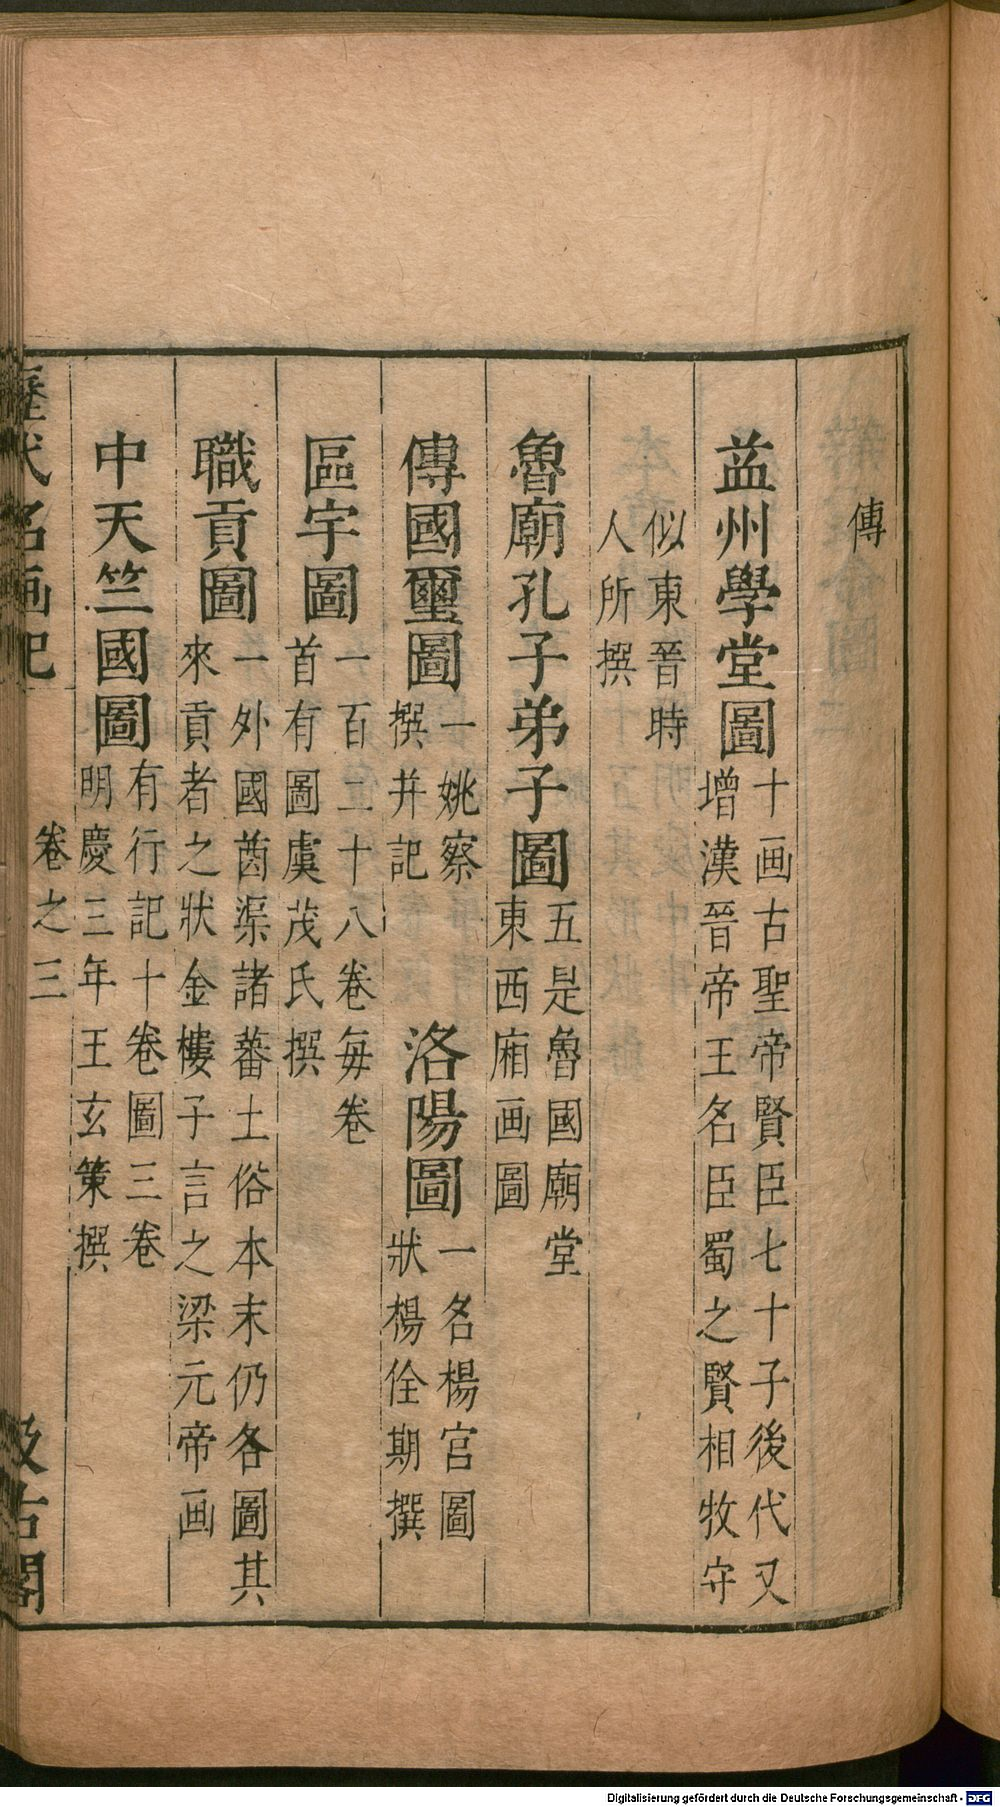 傳
益州學堂圖十画古聖帝賢臣七十子後代又
增漢晉帝王名臣蜀之賢相牧守
似東晉時
人所撰
魯廟孔子弟子圖五是魯國廟堂
東西廂画圖
傳國璽圖一姚察
撰并記
洛陽圖一名楊宫圖
狀楊佺期撰
區宇圖一百二十八卷每卷
首有圖虞茂氏撰
職貢圖一外國酋渠諸蕃土俗本末仍各圖其
來貢者之狀金樓子言之梁元帝画
中天竺國圖有行記十卷圖三卷
明慶三年王玄策撰
歷代名画記
卷之三
汲古閣
Digitalisierung gefördert durch die Deutsche Forschungsgemeinschaft - DFG